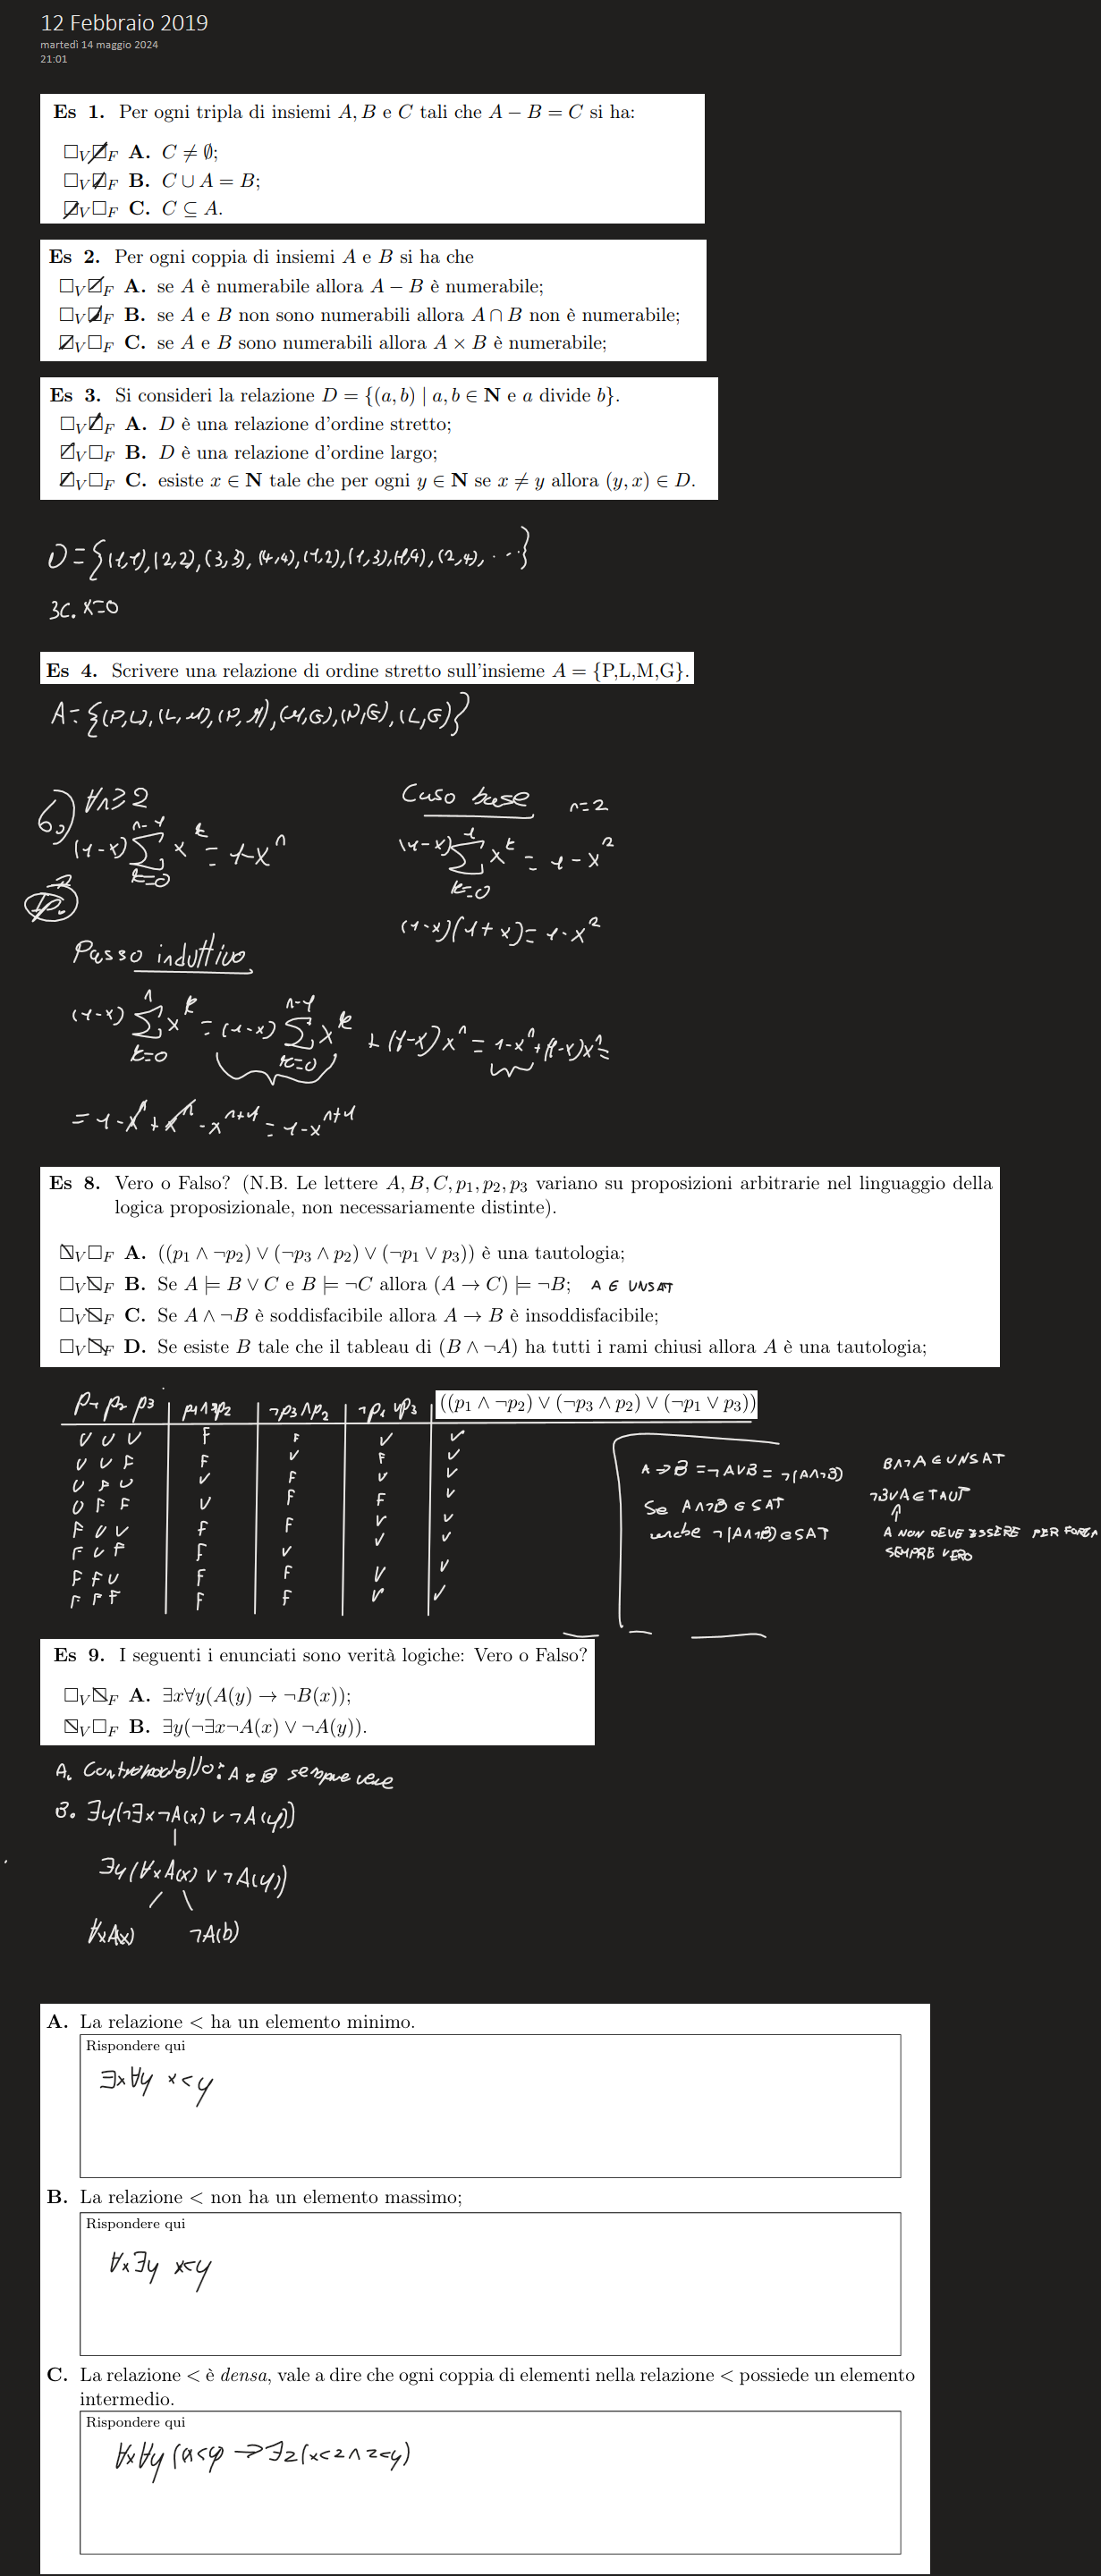 12 Febbraio 2019
martedì 14 maggio 2024
21:01
Es 1. Per ogni tripla di insiemi A, B e C tali che A − B = C si ha:
□V☑F A. C ≠ ∅;
□V☑F B. C ∪ A = B;
☑V□F C. C ⊆ A.
Es 2. Per ogni coppia di insiemi A e B si ha che
□V☑F A. se A è numerabile allora A − B è numerabile;
□V☑F B. se A e B non sono numerabili allora A ∩ B non è numerabile;
☑V□F C. se A e B sono numerabili allora A × B è numerabile;
Es 3. Si consideri la relazione D = {(a, b) | a, b ∈ N e a divide b}.
□V☑F A. D è una relazione d'ordine stretto;
☑V□F B. D è una relazione d'ordine largo;
☑V□F C. esiste x ∈ N tale che per ogni y ∈ N se x ≠ y allora (y, x) ∈ D.
D = {(1,1), (2,2), (3,3), (4,4), (1,2), (1,3), (1,4), (2,4), ...}
3C. x=0
Es 4. Scrivere una relazione di ordine stretto sull'insieme A = {P,L,M,G}.
A = {(P,L), (L,M), (P,M), (M,G), (P,G), (L,G)}
6.) ∀n≥2
(1-x) ∑_{k=0}^{n-1} x^k = 1-x^n
Ip.
Caso base n=2
(1-x) ∑_{k=0}^{1} x^k = 1-x^2
(1-x)(1+x) = 1-x^2
Passo induttivo
(1-x) ∑_{k=0}^{n} x^k = (1-x) ∑_{k=0}^{n-1} x^k + (1-x)x^n = 1-x^n + (1-x)x^n =
= 1-x^n + x^n - x^{n+1} = 1-x^{n+1}
Es 8. Vero o Falso? (N.B. Le lettere A, B, C, p1, p2, p3 variano su proposizioni arbitrarie nel linguaggio della
logica proposizionale, non necessariamente distinte).
☑V□F A. ((p1 ∧ ¬p2) ∨ (¬p3 ∧ p2) ∨ (¬p1 ∨ p3)) è una tautologia;
□V☑F B. Se A ⊨ B ∨ C e B ⊨ ¬C allora (A → C) ⊨ ¬B; A ∈ UNSAT
□V☑F C. Se A ∧ ¬B è soddisfacibile allora A → B è insoddisfacibile;
□V☑F D. Se esiste B tale che il tableau di (B ∧ ¬A) ha tutti i rami chiusi allora A è una tautologia;
p1 p2 p3 | p1∧¬p2 | ¬p3∧p2 | ¬p1∨p3 | ((p1 ∧ ¬p2) ∨ (¬p3 ∧ p2) ∨ (¬p1 ∨ p3))
V V V | F | F | V | V
V V F | F | V | F | V
V F V | V | F | V | V
V F F | V | F | F | V
F V V | F | F | V | V
F V F | F | V | V | V
F F V | F | F | V | V
F F F | F | F | V | V
A→B = ¬A∨B = ¬(A∧¬B)
Se A∧¬B ∈ SAT
anche ¬(A∧¬B) ∈ SAT
B∧¬A ∈ UNSAT
¬B∨A ∈ TAUT
↑
A NON DEVE ESSERE PER FORZA
SEMPRE VERO
Es 9. I seguenti i enunciati sono verità logiche: Vero o Falso?
□V☑F A. ∃x∀y(A(y) → ¬B(x));
☑V□F B. ∃y(¬∃x¬A(x) ∨ ¬A(y)).
A. Contromodello: A e B sempre vere
B. ∃y(¬∃x¬A(x) ∨ ¬A(y))
∃y(∀xA(x) ∨ ¬A(y))
∀xA(x) ¬A(b)
A. La relazione < ha un elemento minimo.
Rispondere qui
∃x∀y x<y
B. La relazione < non ha un elemento massimo;
Rispondere qui
∀x∃y x<y
C. La relazione < è densa, vale a dire che ogni coppia di elementi nella relazione < possiede un elemento
intermedio.
Rispondere qui
∀x∀y (x<y → ∃z(x<z ∧ z<y)